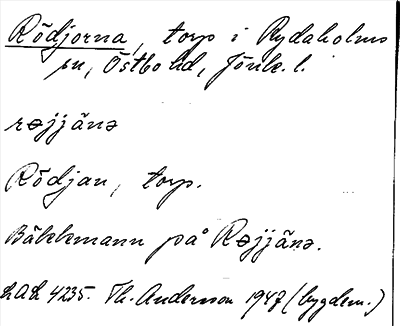 Rödjorna, torp i Rydaholms
sn, Östbo hd, Jönk. l.
rəjjänə
Rödjan, torp.
Bäckmann på Rəjjänə.
LAL 4235. Th. Anderson 1947 (bygdem.)